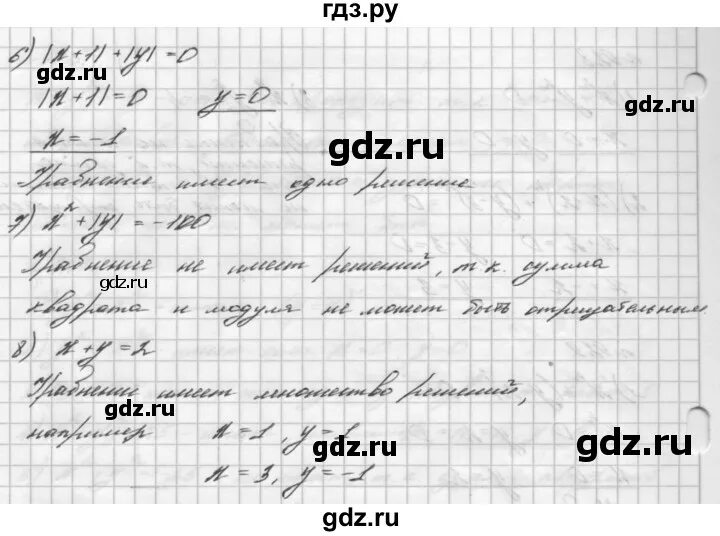 гдз.ру
6) |x+1| + |y| = 0
|x+1| = 0 y = 0
x = -1
Уравнение имеет одно решение
7) x² + |y| = -100
Уравнение не имеет решений, т.к. сумма
квадрата и модуля не может быть отрицательным.
8) x + y = 2
Уравнение имеет множество решений,
например x = 1, y = 1
x = 3, y = -1
gdz.ru
gdz.ru
gdz.ru
gdz.ru
gdz.ru
gdz.ru
gdz.ru
gdz.ru
gdz.ru
gdz.ru